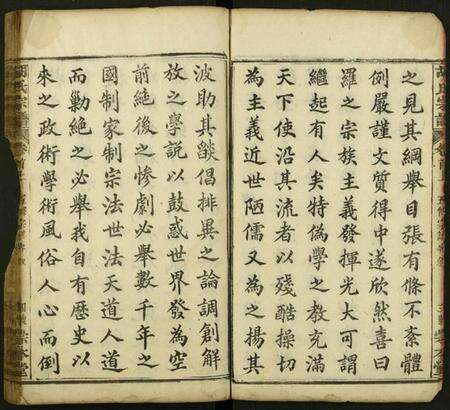 之見其綱舉目張有條不紊體
例嚴謹文質得中遂欣然喜曰
羅之宗族主義發揮光大可謂
繼起有人矣特偽學之教充滿
天下使沿其流者以殘酷操切
為主義近世陋儒又為之揚其
波助其燄倡排異之論調創解
放之學說以鼓惑世界發為空
前絕後之慘劇必舉數千年之
國制家制宗法世法天道人道
而勦絕之必舉我自有歷史以
來之政術學術風俗人心而倒